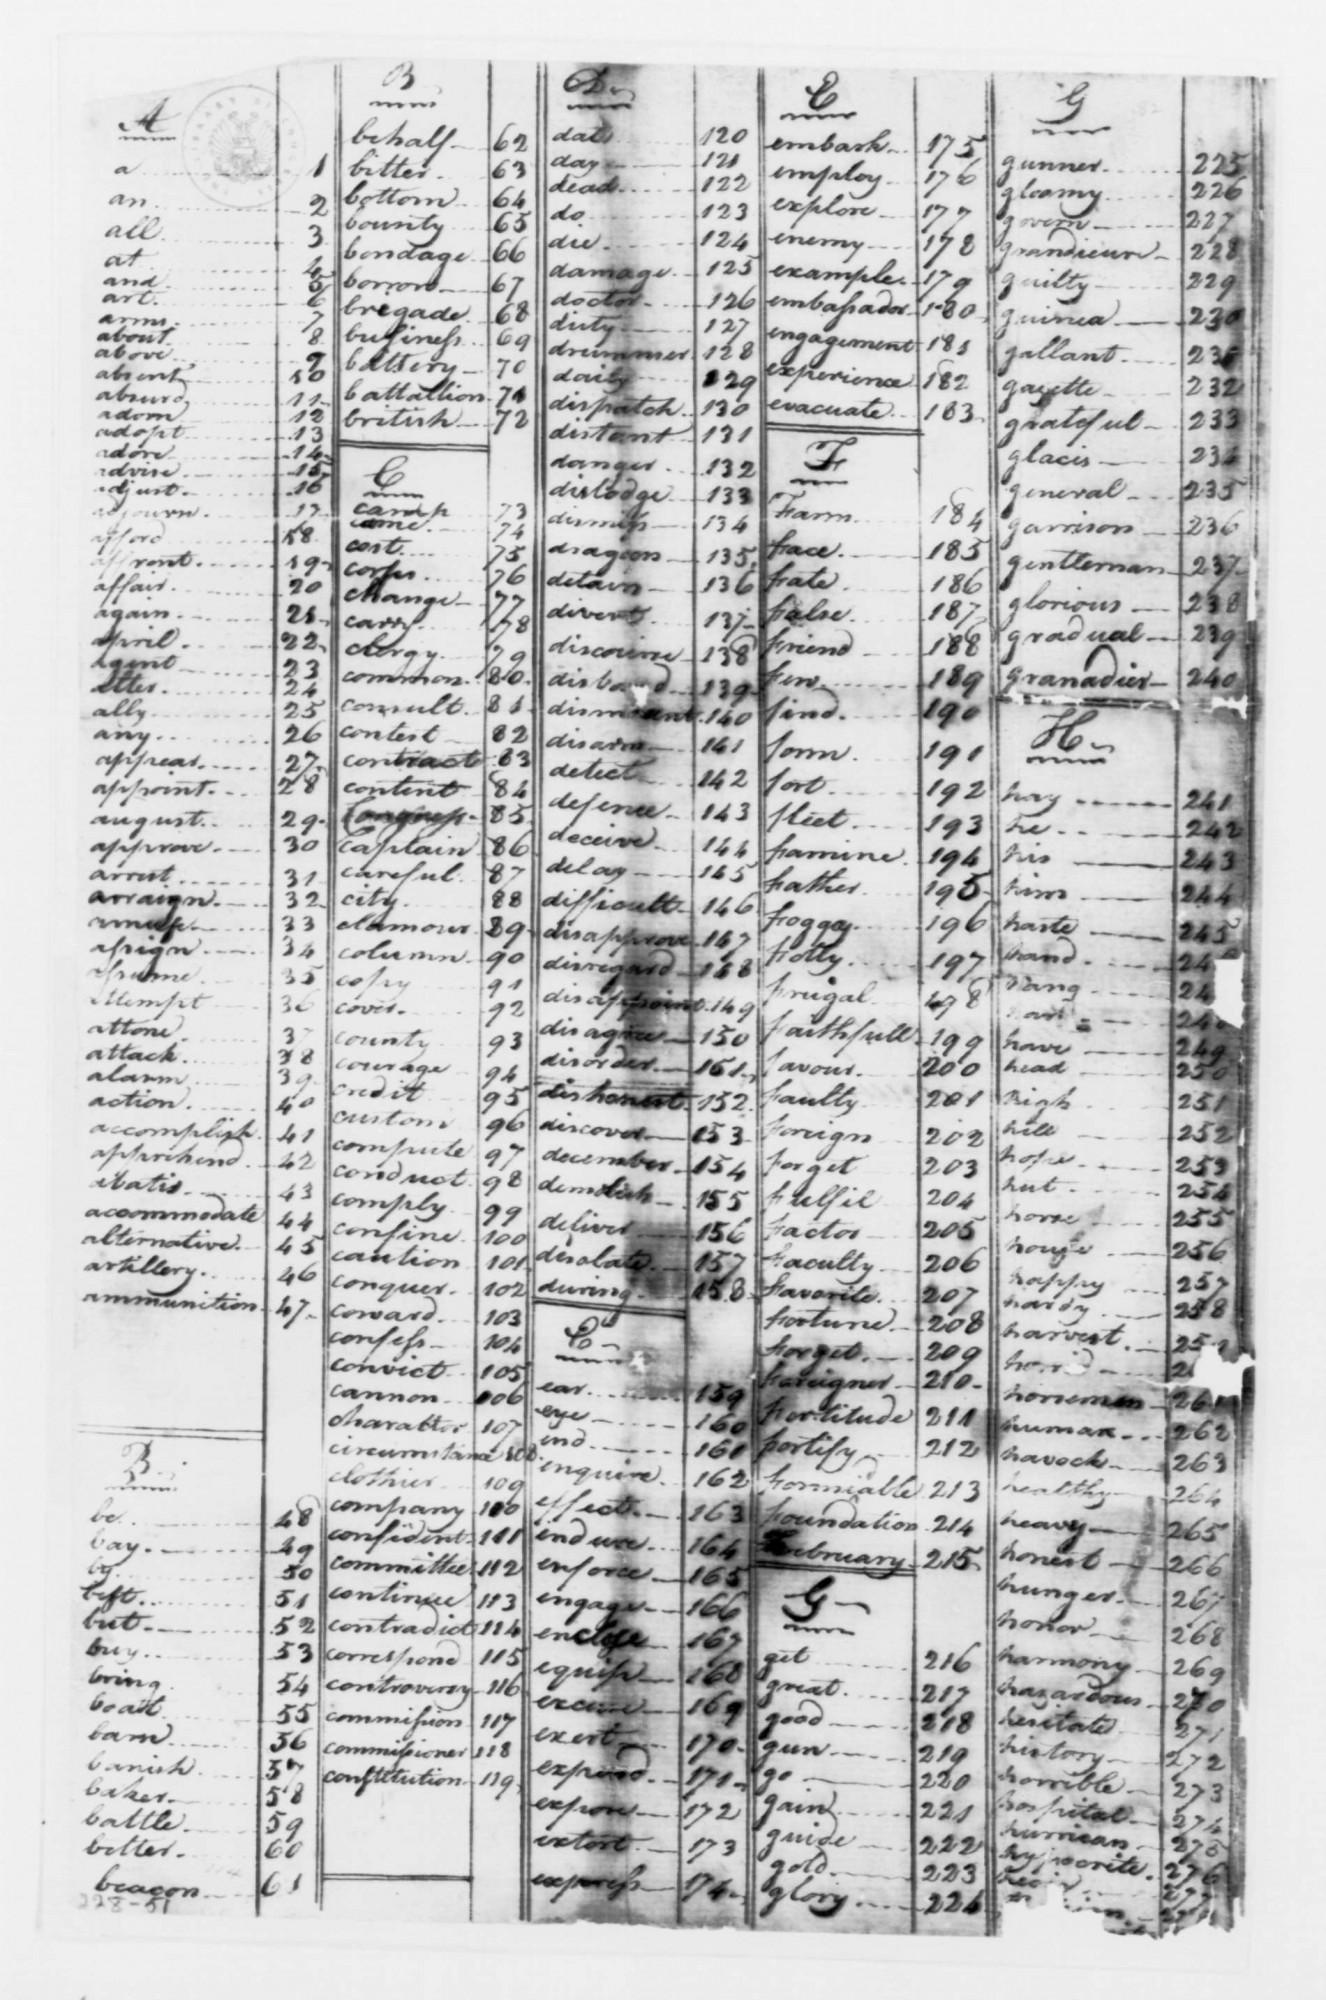 A
a 1
an 2
all 3
at 4
and 5
art 6
arms 7
about 8
above 9
absent 10
absurd 11
adorn 12
adopt 13
adore 14
advise 15
adjust 16
adjourn 17
afford 18
affront 19
affair 20
again 21
april 22
agent 23
alter 24
ally 25
any 26
appear 27
appoint 28
august 29
approve 30
arrest 31
arraign 32
amuse 33
assign 34
assume 35
attempt 36
attone 37
attack 38
alarm 39
action 40
accomplish 41
apprehend 42
abatis 43
accommodate 44
alternative 45
artillery 46
ammunition 47
B
be 48
bay 49
by 50
best 51
but 52
buy 53
bring 54
boat 55
barn 56
banish 57
baker 58
battle 59
better 60
beacon 61
228-51
B
behalf 62
bitter 63
bottom 64
bounty 65
bondage 66
borrow 67
bregade 68
business 69
battery 70
battallion 71
british 72
C
camp 73
came 74
cost 75
corps 76
change 77
carry 78
clergy 79
common 80
consult 81
contest 82
contract 83
content 84
Congress 85
Captain 86
careful 87
city 88
clamour 89
column 90
copy 91
cover 92
county 93
courage 94
credit 95
custom 96
compute 97
conduct 98
comply 99
confine 100
caution 101
conquer 102
coward 103
confess 104
convict 105
cannon 106
charactor 107
circumstance 108
clothier 109
company 110
confident 111
committee 112
continue 113
contradict 114
correspond 115
controversy 116
commission 117
commissioner 118
constitution 119
D
date 120
day 121
dead 122
do 123
die 124
damage 125
doctor 126
duty 127
drummer 128
daily 129
dispatch 130
distant 131
danger 132
dislodge 133
dismiss 134
dragoon 135
detain 136
divert 137
discourse 138
disband 139
dismount 140
disarm 141
detect 142
defence 143
deceive 144
delay 145
difficult 146
disapprove 147
disregard 148
disappoint 149
disagree 150
disorder 151
dishonest 152
discover 153
december 154
demolish 155
deliver 156
desolate 157
during 158
E
ear 159
eye 160
end 161
enquire 162
effect 163
endure 164
enforce 165
engage 166
enclose 167
equip 168
excuse 169
exert 170
expend 171
expose 172
extort 173
express 174
E
embark 175
employ 176
explore 177
enemy 178
example 179
embassador 180
engagement 181
experience 182
evacuate 183
F
Farm 184
face 185
fate 186
false 187
friend 188
few 189
find 190
form 191
fort 192
fleet 193
famine 194
father 195
foggy 196
folly 197
frugal 198
faithfull 199
favour 200
faulty 201
foreign 202
forget 203
fulfil 204
factor 205
faculty 206
favorite 207
fortune 208
forget 209
foreigner 210
fortitude 211
fortify 212
formiable 213
foundation 214
february 215
G
get 216
great 217
good 218
gun 219
go 220
gain 221
guide 222
gold 223
glory 224
G
gunner 225
gloomy 226
govern 227
grandieur 228
guilty 229
guinea 230
gallant 231
gazette 232
grateful 233
glacis 234
general 235
garrison 236
gentleman 237
glorious 238
gradual 239
granadier 240
H
hay 241
he 242
his 243
him 244
haste 245
hand 24
hang 24
24
have 249
head 250
high 251
hill 252
hope 253
hut 254
horse 255
house 256
happy 257
hardy 258
harvest 259
horrid 2
horsemen 261
human 262
havock 263
healthy 264
heavy 265
honest 266
hunger 267
honor 268
harmony 269
hazardous 270
hesitate 271
history 272
horrible 273
hospital 274
hurrican 275
hypocrite 276
277